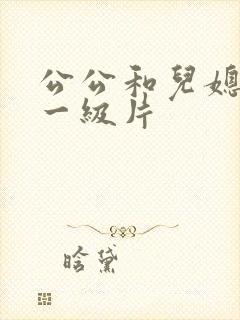 公公和兒媳
一級片
晗黛